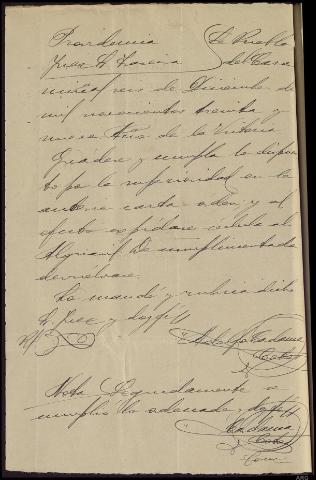 Providencia
Juez Sr. García
La Puebla
del Cara
miñal seis de Diciembre de
mil novecientos treinta y
nueve Año de la Victoria
Guardese y cumpla lo dispues
to por la superioridad en la
anterior carta-orden y al
efecto expidase cedula al
Alguacil. De cumplimentada
devuelvase.
Lo mandó y rubrica dicho
Sr. Juez y doy fe
Nota. Seguidamente se
cumplió lo ordenado y doy fe